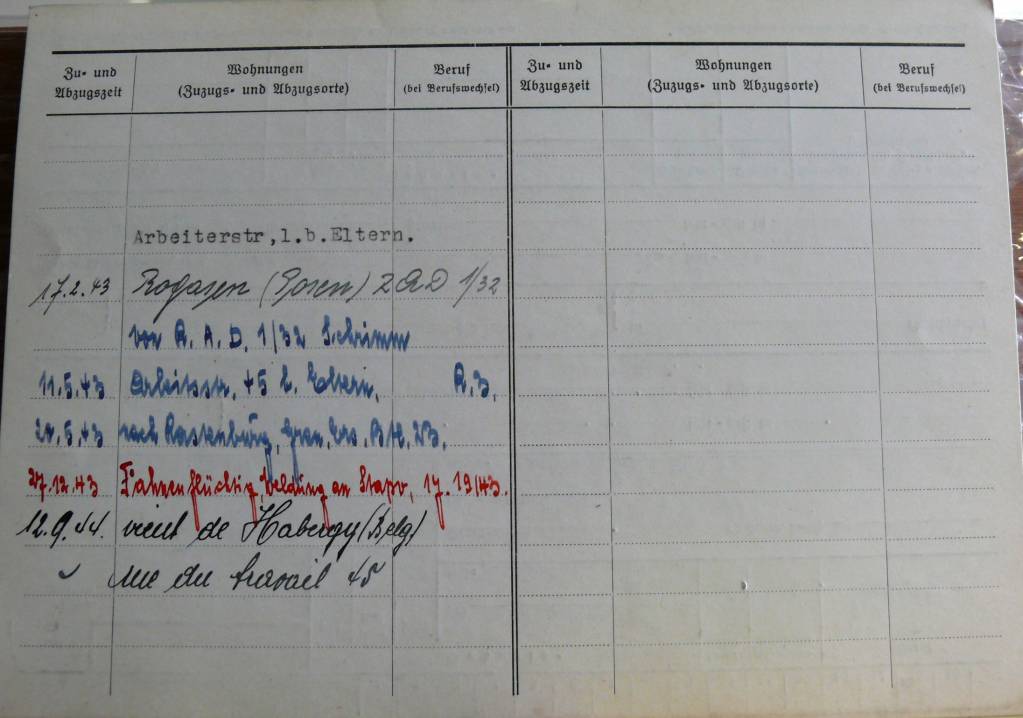 Zu- und Abzugszeit
Wohnungen (Zuzugs- und Abzugsorte)
Beruf (bei Berufswechsel)
Zu- und Abzugszeit
Wohnungen (Zuzugs- und Abzugsorte)
Beruf (bei Berufswechsel)
Arbeiterstr,1.b.Eltern.
17.2.43 Rogasen (Posen) RAD 1/32
von R. A. D. 1/32 Schrimm
11.5.43 Arbeitsstr. 45 b. Eltern, R.Z.
24.5.43 nach Rastenburg, Gren. Ers. Btl. 23.
27.12.43 Fahnenflüchtig, Meldung an Stapo, 17. 1943.
12.9.44. vient de Habergy (Belg)
rue du travail 45